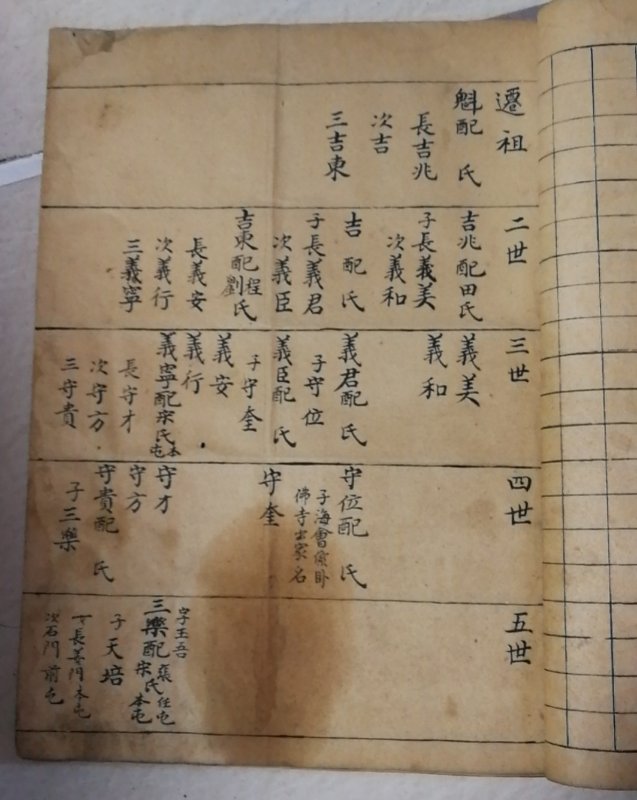 遷祖
魁配　氏
長吉兆
次吉
三吉東
二世
吉兆配田氏
子長義美
次義和
吉　配　氏
子長義君
次義臣
吉東配程劉氏
長義安
次義行
三義寧
三世
義美
義和
義君配　氏
子守位
義臣配　氏
子守奎
義安
義行
義寧配宋氏本屯
長守才
次守方
三守貴
四世
守位配　氏
子海會
佛寺出家名
守奎
守才
守方
守貴配　氏
子三樂
五世
字玉吾
三樂配宋氏本屯
任屯
子天培
女長姜門本屯
次石門前屯